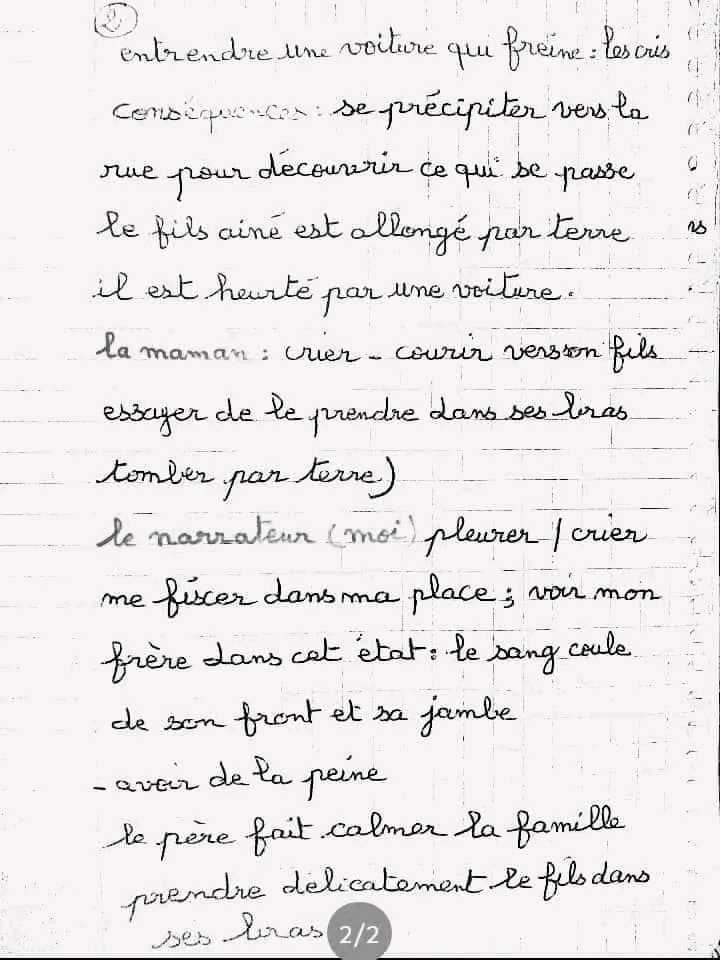 2
entrendre une voiture qui freine : les cris
conséquences : se précipiter vers la
rue pour découvrir ce qui se passe
le fils ainé est allongé par terre
il est heurté par une voiture.
la maman : crier - courir vers son fils
essayer de le prendre dans ses bras
tomber par terre)
le narrateur (moi) pleurer / crier
me fixer dans ma place ; voir mon
frère dans cet état : le sang coule
de son front et sa jambe
- avoir de la peine
le père fait calmer la famille
prendre délicatement le fils dans
ses bras
2/2